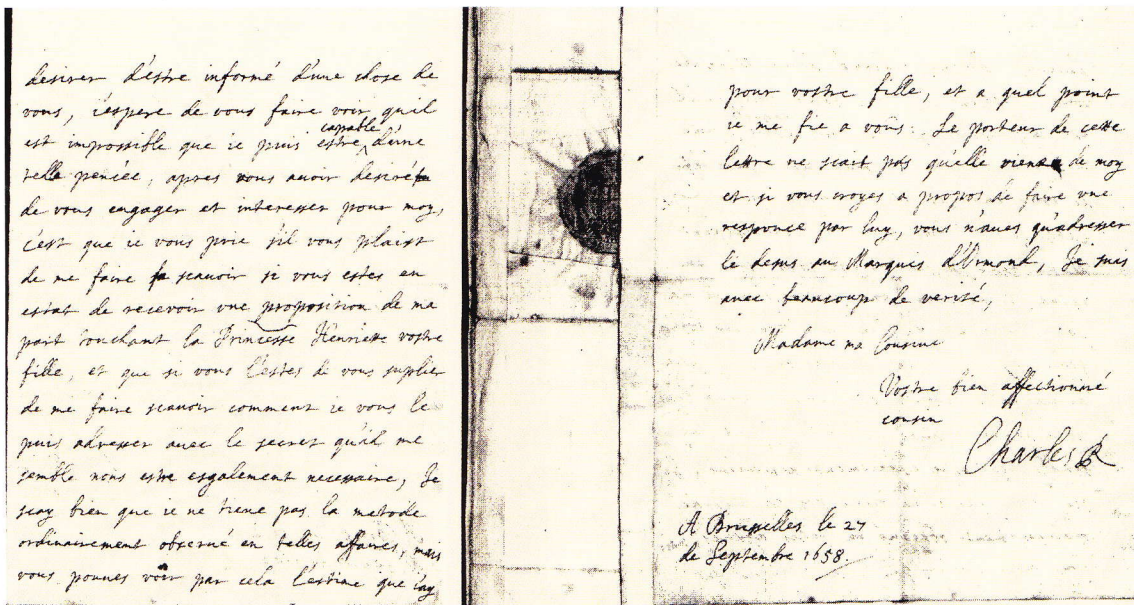 desirer d'éstre informé d'une chose de
vous, i'espere de vous faire voir qu'il
est impossible que ie puis estre capable d'une
telle pencée, apres vous auoir desiré
de vous engager et interesser pour moy,
c'est que ie vous prie s'il vous plaist
de me faire scauoir si vous estes en
estat de recevoir vne proposition de ma
part touchant la Princesse Henriette vostre
fille, et que si vous l'estes de vous suplier
de me faire scauoir comment ie vous le
puis adresser auec le secret qu'il me
semble nous estre esgalement necessaire, Je
scay bien que ie ne tiene pas la metode
ordinairement obserué en telles affaires, mais
vous pouues voir par cela l'estime que i'ay
pour vostre fille, et a quel point
ie me fie a vous. Le porteur de cette
lettre ne scait pas quelle vient de moy
et si vous croyes a propos de faire vne
responce par luy, vous n'aues qu'adresser
le desus au Marques d'Ormond, Je suis
auec beaucoup de verité,
Madame ma Cousine
Vostre bien affectionné
cousin
Charles R
A Bruxelles le 27
de Septembre 1658